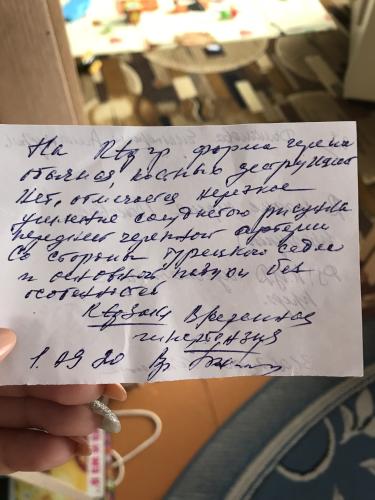 На Rtg гр форма черепа
обычная, костных деструкций
нет, отмечается нерезкое
усиление сосудистого рисунка
передней черепной артерии
Со стороны турецкого седла
и основной пазухи без
особенностей
Rtgзакл Врожденная
гипертензия
1.09 20 Вр